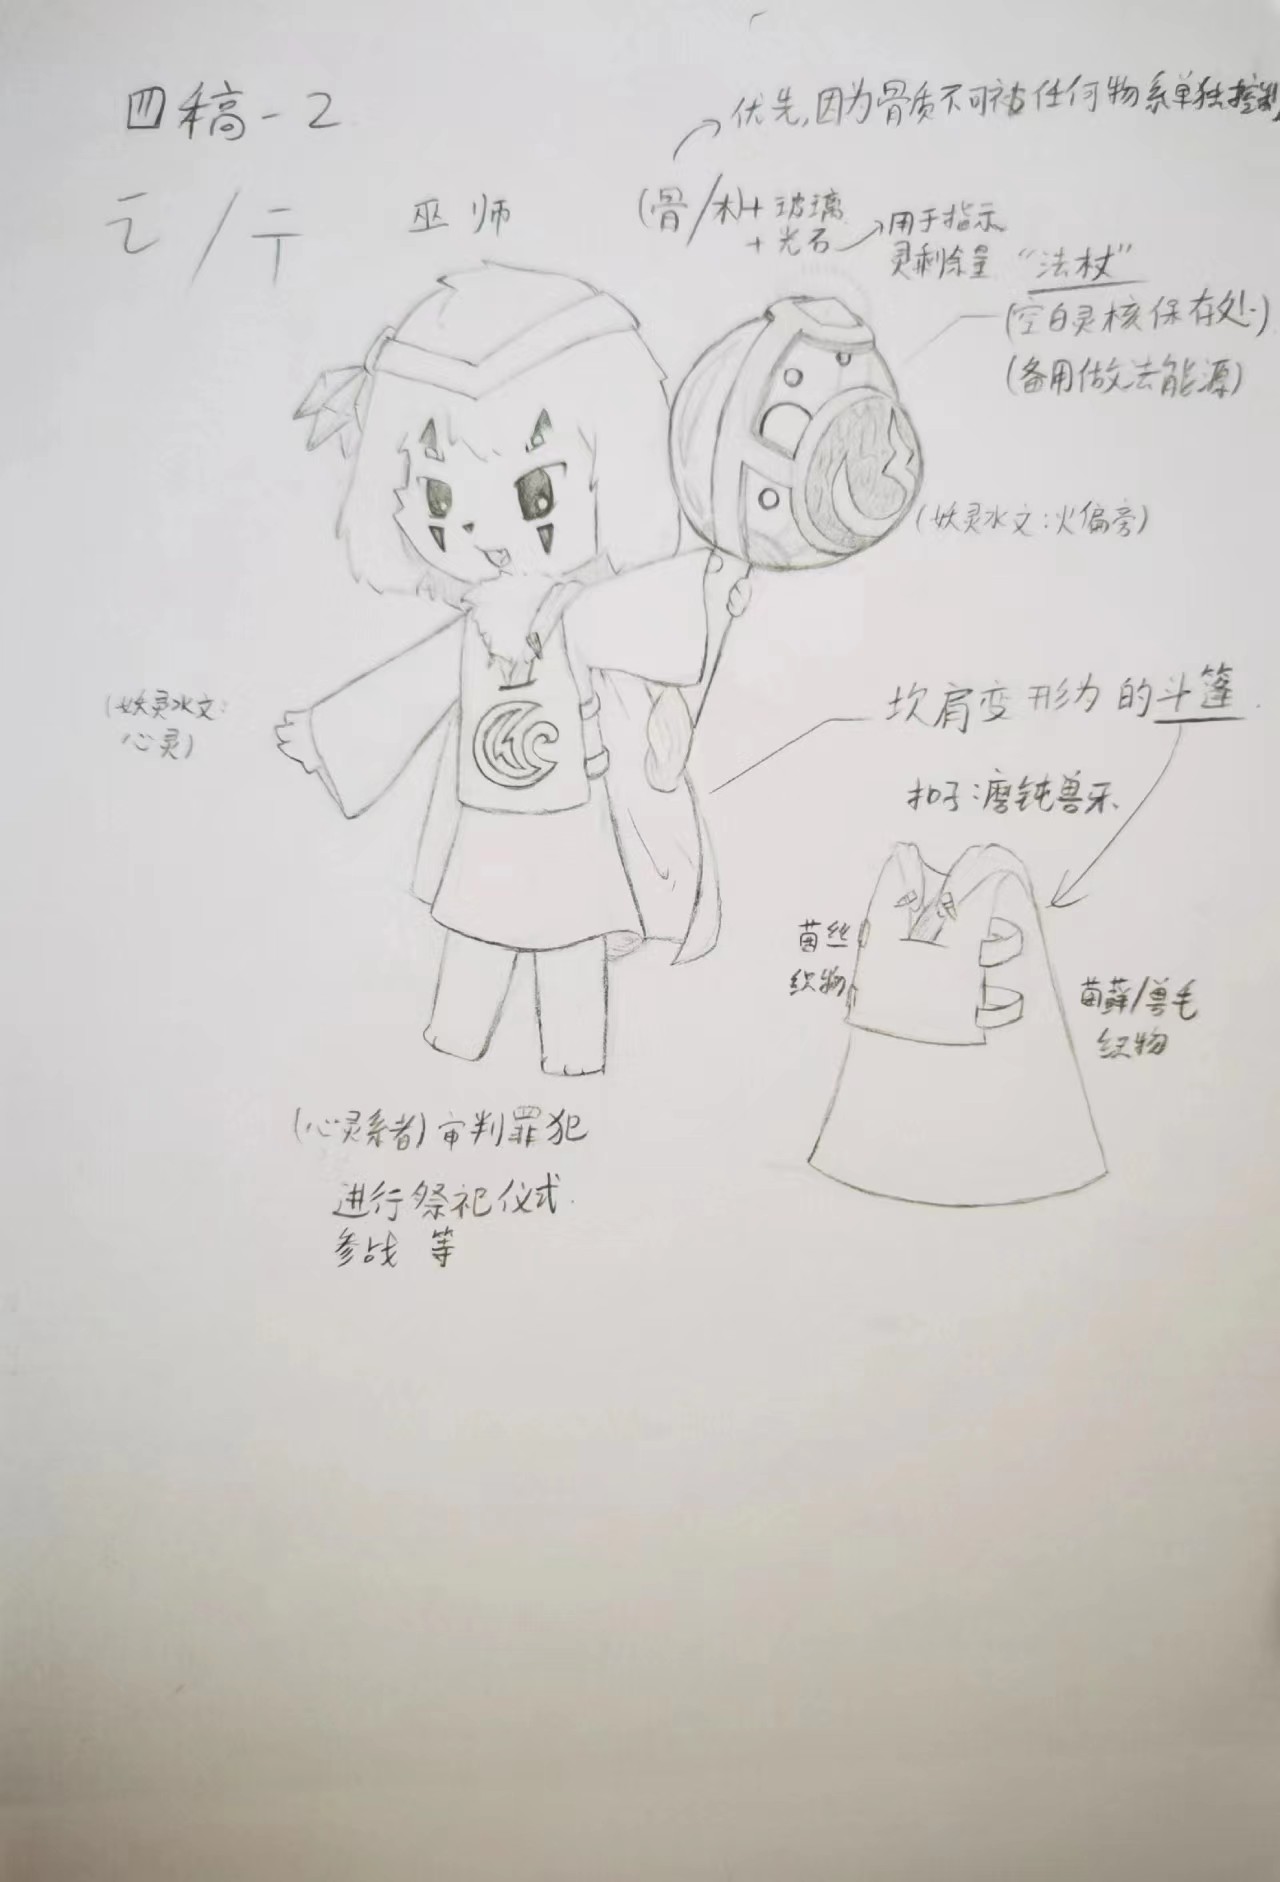 四稿-2
巫师
优先,因为骨质不可被任何物系单独控制
(骨/木)+玻璃
+光石
用于指示
灵剩余量
“法杖”
(空白灵核保存处)
(备用做法能源)
(妖灵水文:火偏旁)
(妖灵水文:
心灵)
坎肩变形为的斗篷
扣子:磨钝兽牙
菌丝
织物
苗藓/兽毛
织物
(心灵系者)审判罪犯
进行祭祀仪式
参战 等